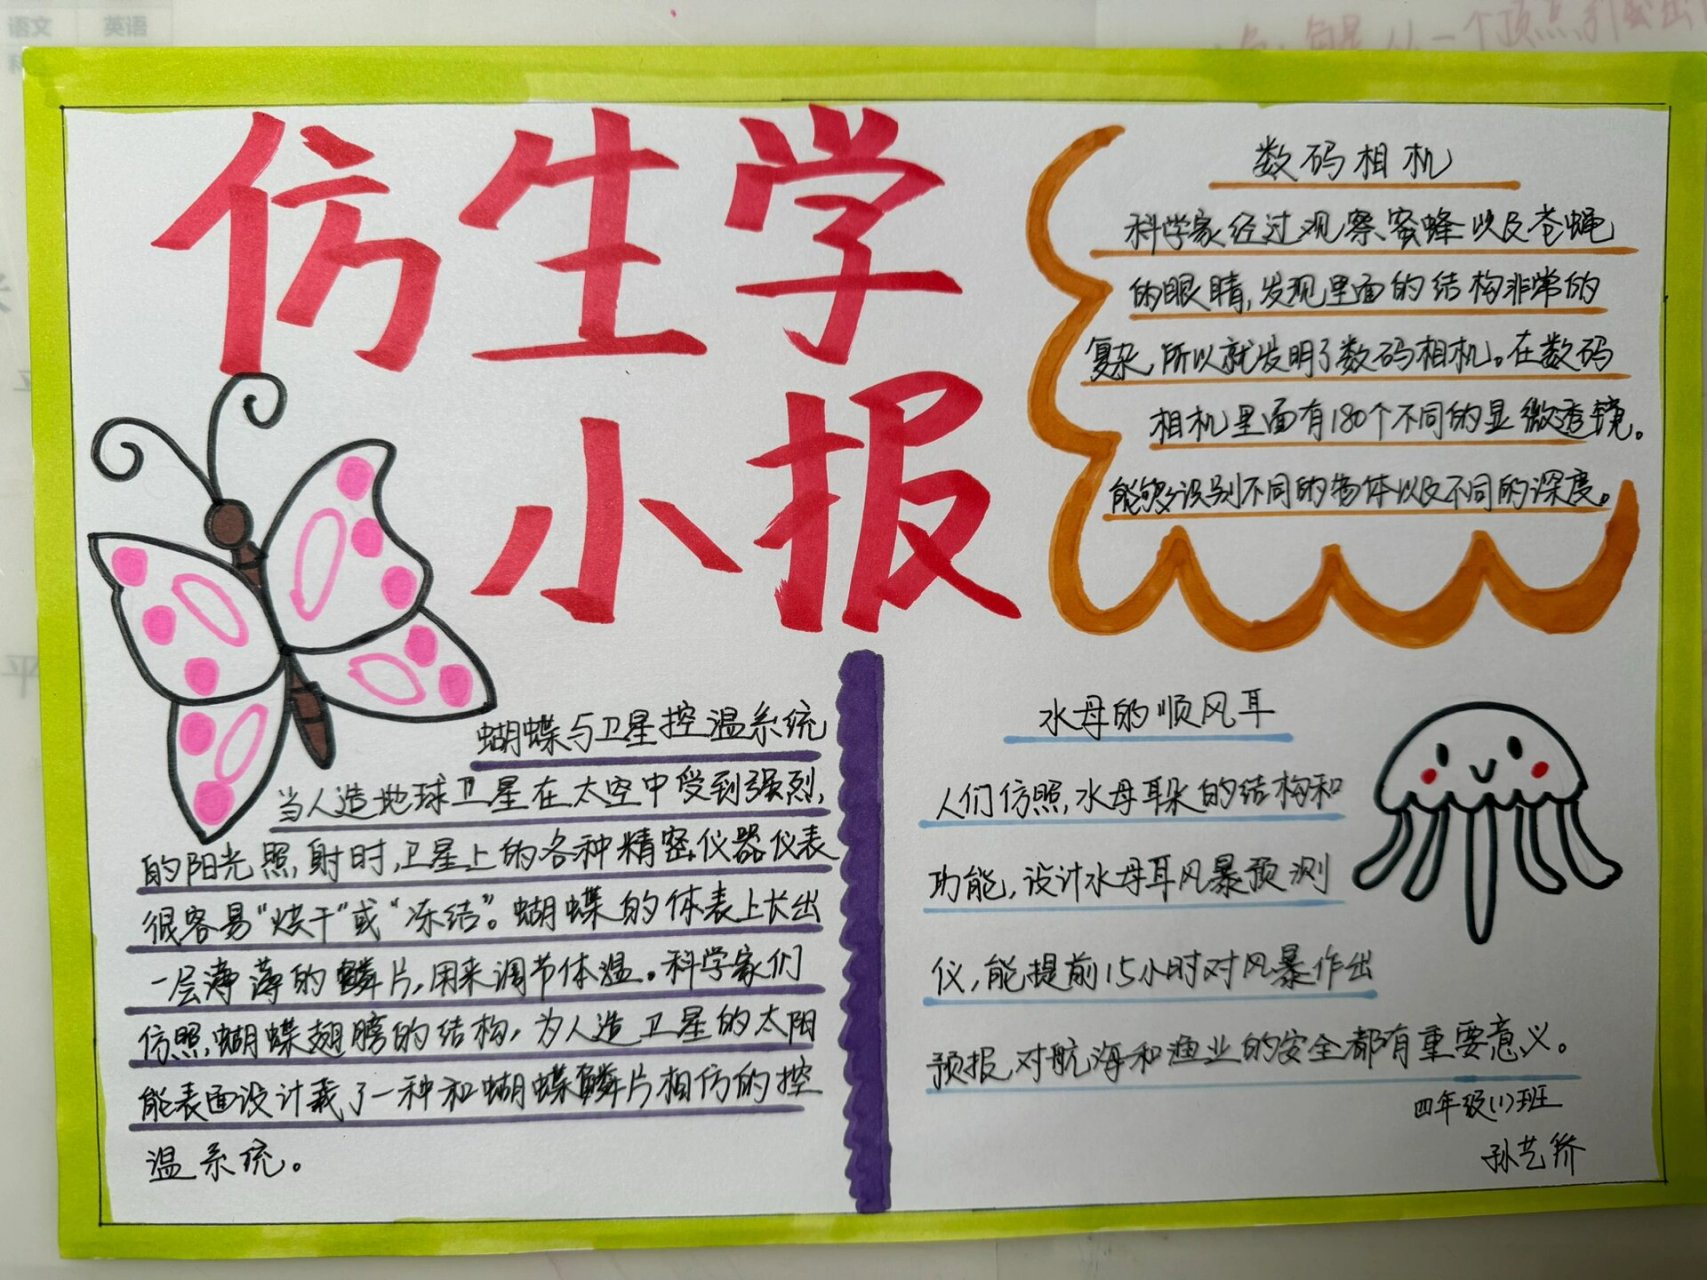 语文 英语
一个顶点引出
仿生学
小报
数码相机
科学家经过观察蜜蜂以及苍蝇
的眼睛,发现里面的结构非常的
复杂,所以就发明了数码相机。在数码
相机里面有180个不同的显微透镜。
能够识别不同的物体以及不同的深度。
蝴蝶与卫星控温系统
当人造地球卫星在太空中受到强烈,
的阳光照,射时,卫星上的各种精密仪器仪表
很容易“烘干”或“冻结”。蝴蝶的体表上长出
一层薄薄的鳞片,用来调节体温。科学家们
仿照蝴蝶翅膀的结构,为人造卫星的太阳
能表面设计裁了一种和蝴蝶鳞片相仿的控
温系统。
水母的顺风耳
人们仿照,水母耳朵的结构和
功能,设计水母耳风暴预测
仪,能提前15小时对风暴作出
预报,对航海和渔业的安全都有重要意义。
四年级(1)班
孙艺